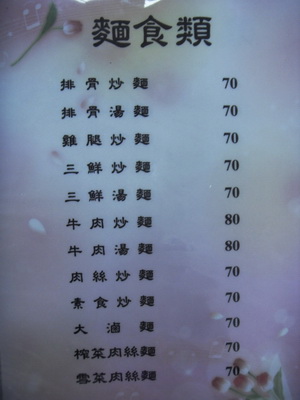 麵食類
排骨炒麵 70
排骨湯麵 70
雞腿炒麵 70
三鮮炒麵 70
三鮮湯麵 70
牛肉炒麵 80
牛肉湯麵 80
肉絲炒麵 70
素食炒麵 70
大滷麵 70
榨菜肉絲麵 70
雪菜肉絲麵 70